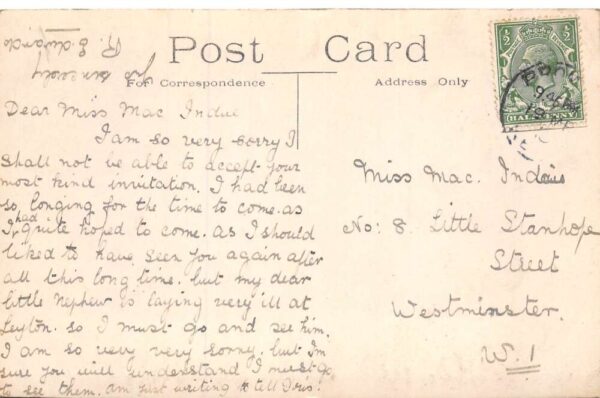 Post Card
For Correspondence
Address Only
HALFPENNY
Dear Miss Mac Indue
I am so very sorry I
shall not be able to accept your
most kind invitation. I had been
so longing for the time to come. as
I had quite hoped to come. as I should
liked to have seen you again after
all this long time. but my dear
little nephew is laying very ill at
Leyton. so I must go and see him.
I am so very very sorry. but Im
sure you will understand I must go
to see them. am just writing to tell
Miss Mac.
No: 8 Little Stanhope
Street
Westminster.
W. 1